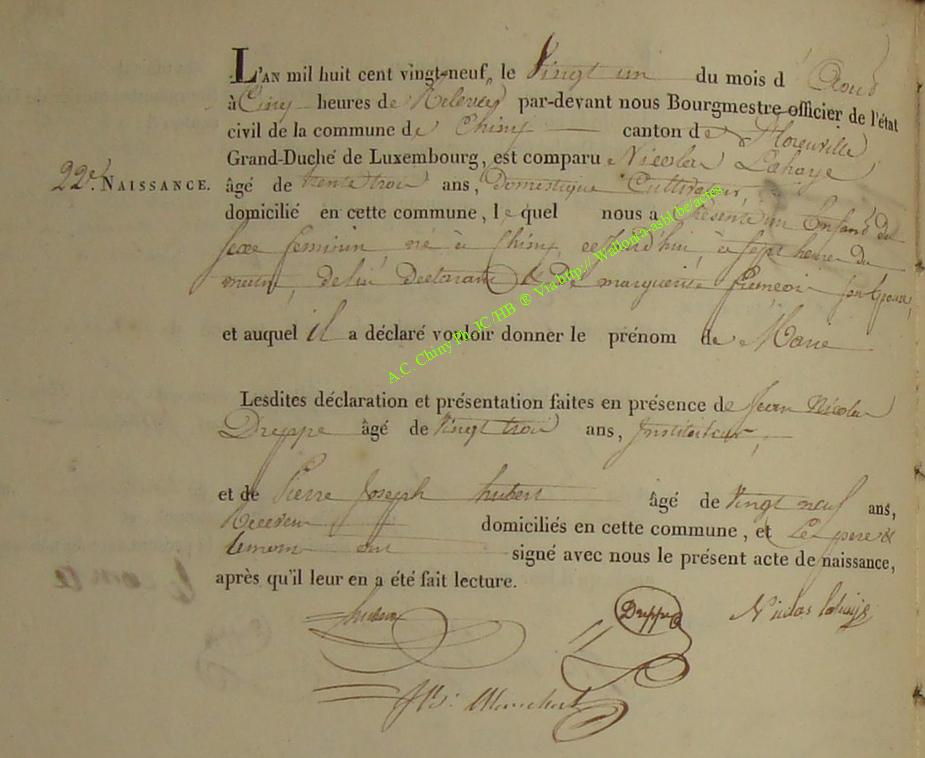 L'AN mil huit cent vingt-neuf, le Vingt un du mois d' Aout
à Cinq heures de Relevée par-devant nous Bourgmestre officier de l'état
civil de la commune de Chiny canton de Florenville
Grand-Duché de Luxembourg, est comparu Nicolas Lahaye
22e. NAISSANCE. âgé de trente trois ans, Domestique Cultivateur,
domicilié en cette commune, lequel nous a présenté un Enfant du
sexe feminin, né à Chiny, cejourd'hui, à sept heures du
matin, de lui declarant & de marguerite son Epouse,
et auquel il a déclaré vouloir donner le prénom de Marie
Lesdites déclaration et présentation faites en présence de Jean Nicolas
Dreppe âgé de Vingt trois ans, Instituteur,
et de Pierre Joseph hubert âgé de Vingt neuf ans,
Receveur domiciliés en cette commune, et Le pere &
temoins ont signé avec nous le présent acte de naissance,
après qu'il leur en a été fait lecture.
hubert Dreppe Nicolas lahaye
A.C. Chiny Ph. JC/HB ® Via http:// Wallonia-asbl.be/actes